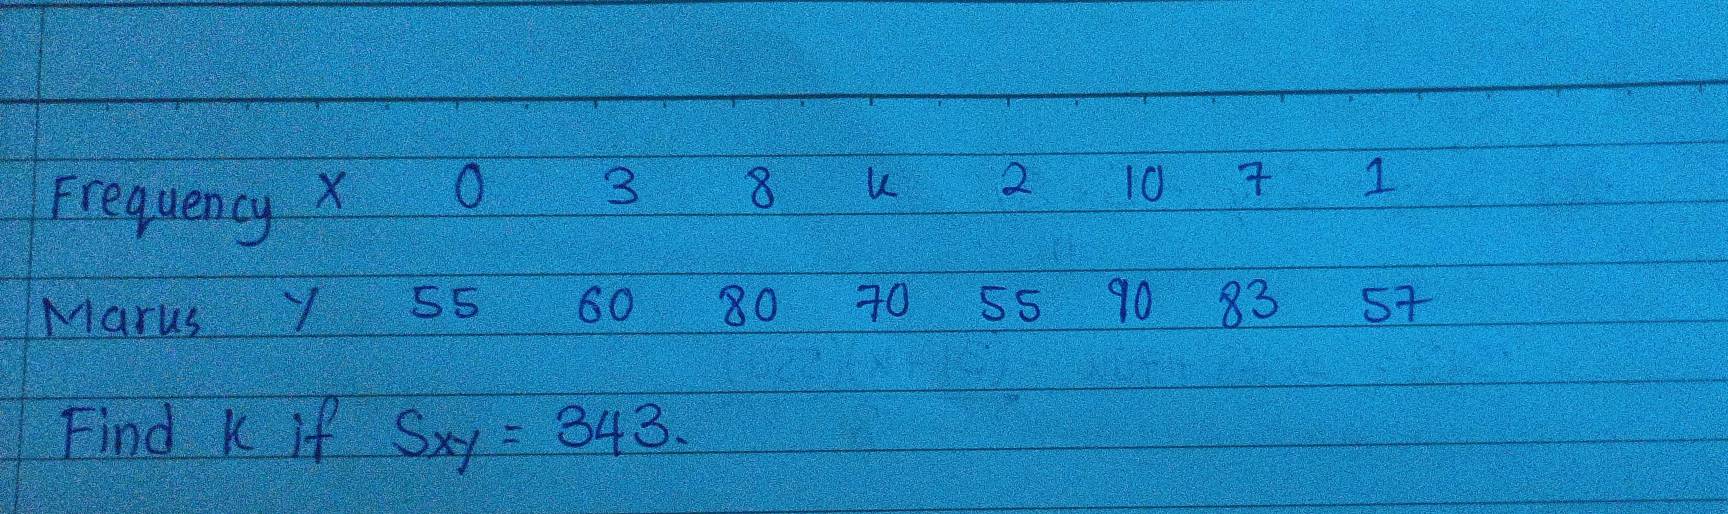 Frequency X 0 3 8 k 2 10 7 1
Marks Y 55 60 80 70 55 90 83 57
Find k if Sxy = 343.